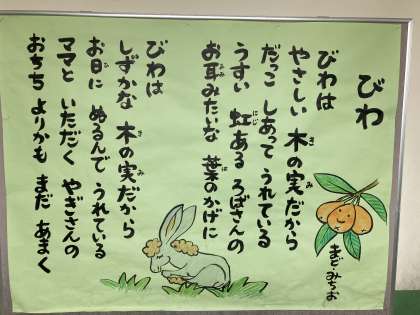 びわ
まど みちお
びわは
やさしい 木の実だから
だっこ しあって うれている
うすい 虹ある ろばさんの
お耳みたいな 葉のかげに
びわは
しずかな 木の実だから
お日に ぬるんで うれている
ママと いただく やぎさんの
おちち よりかも まだ あまく